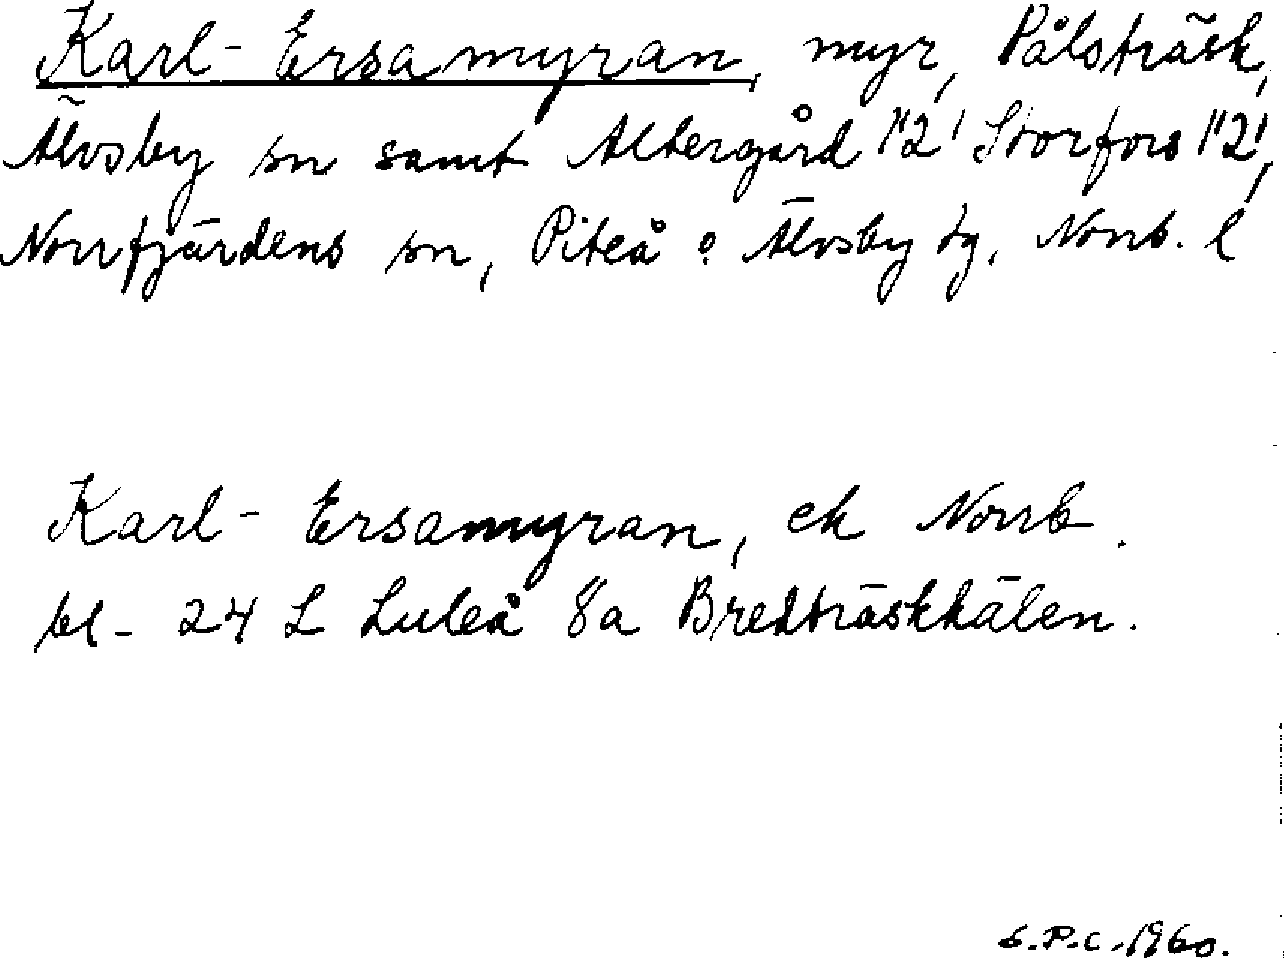 Karl-Ersamyran, myr, Pålsträsk,
Älvsby sn samt Altergård 1"2' Storfors 1"2',
Norrfjärdens sn, Piteå o. Älvsby tg, Norrb. l
Karl-Ersamyran, ek Norrb.
bl- 24 L Luleå 8a Bredträskhälen.
S.P.C. 1960.